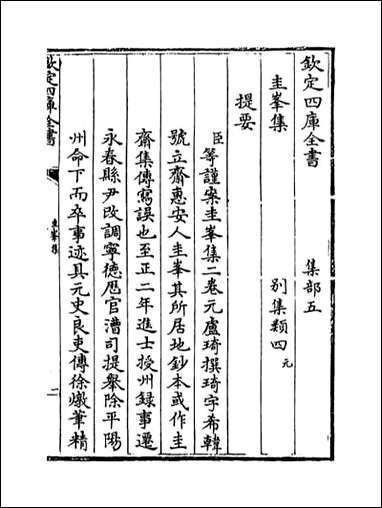 欽定四庫全書
集部五
圭峯集
別集類四元
提要
臣等謹案圭峯集二卷元盧琦撰琦字希韓
號立齋惠安人圭峯其所居地鈔本或作圭
齋集傳寫誤也至正二年進士授州録事遷
永春縣尹改調寧德厯官漕司提舉除平陽
州命下而卒事迹具元史良吏傳徐𤊹筆精
欽定四庫全書
圭峯集
一